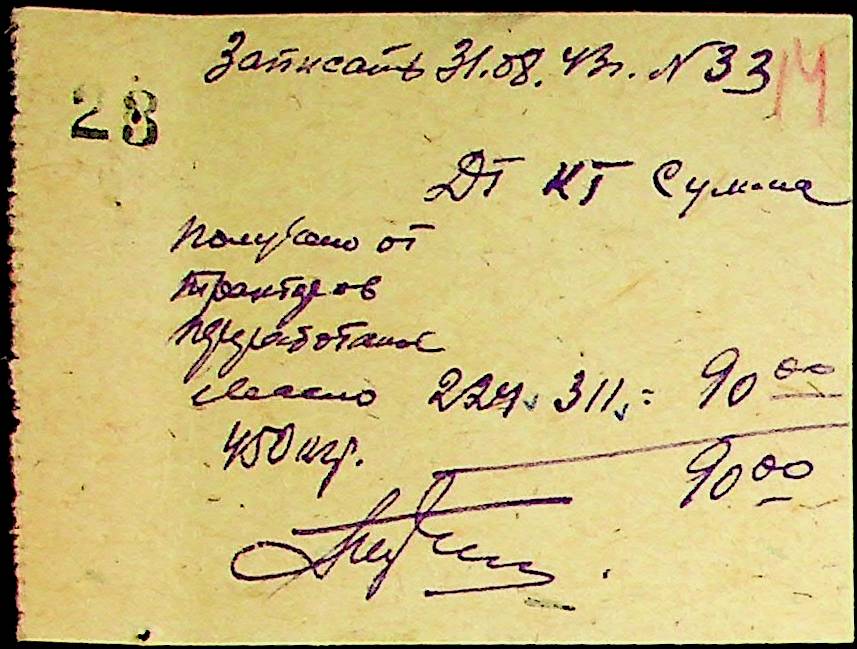 Записать 31.08.43г. N 33
14
28
Дт Кт Сумма
Получено от
тракторов
переработанное
масло 224. 311.= 90 00
450 кгр.
90 00